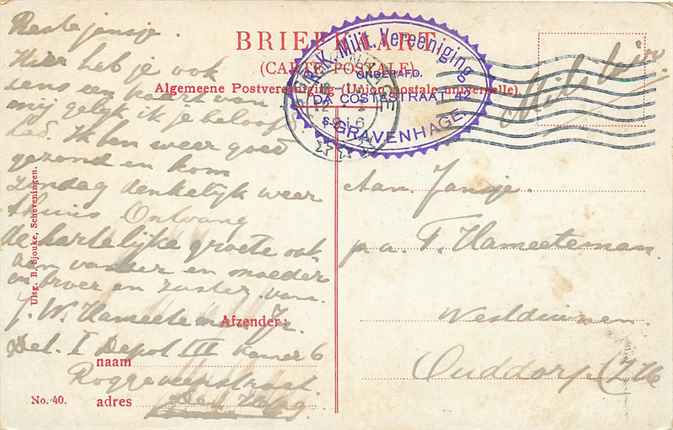 BRIEFKAART
(CARTE POSTALE)
Algemeene Postvereeniging (Union postale universelle)
R.K. Milit. Vereeniging
ONDERAFD.
DA COSTASTRAAT 42
'S GRAVENHAGE
1916
Militair
Beste jansje.
Hier heb je ook
een kaart van
mij gelijk ik je beloofd
heb. Ik ben weer goed
gezond en kom
Zondag denkelijk weer
thuis Ontvang
de hartelijke groete ook
aan vander en moeder
en broer en zuster van.
J. W. Hameeteman Jz.
Det. I Depot III Kamer 6
Roggeveenstraat
Den Haag.
Afzender:
naam
adres
No. 40.
Uitg. B. Sjouke, Scheveningen.
Aan. Jansje.
p.a. T. Hameeteman.
Westduinen
Ouddorp (Z.H.